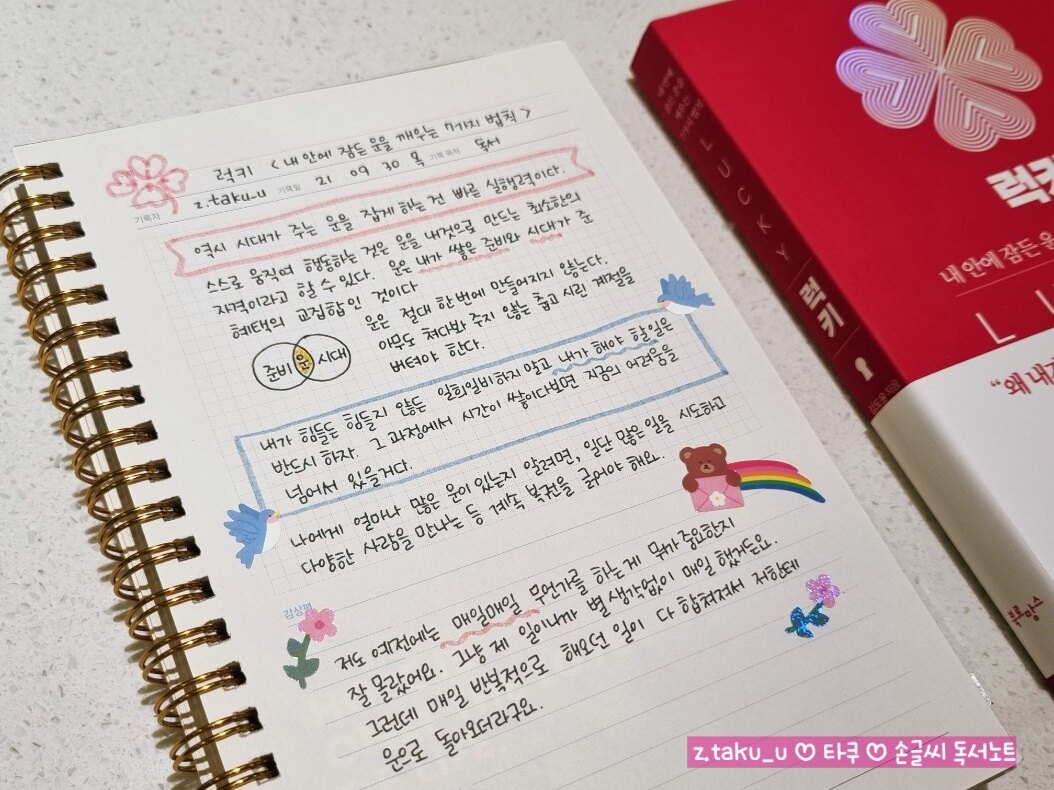 럭키 < 내 안에 잠든 운을 깨우는 7가지 법칙 >
기록자 z.taku_u 기록일 21 09 30 목 기록 목적 독서
역시 시대가 주는 운을 잡게 하는 건 빠른 실행력이다.
스스로 움직여 행동하는 것은 운을 내것으로 만드는 최소한의
자격이라고 할 수 있다. 운은 내가 쌓은 준비와 시대가 준
혜택의 교집합인 것이다
준비 운 시대
운은 절대 한번에 만들어지지 않는다.
아무도 쳐다봐 주지 않는 춥고 시린 계절을
버텨야 한다.
내가 힘들든 힘들지 않든 일희일비하지 않고 내가 해야 할일은
반드시 하자. 그 과정에서 시간이 쌓이다보면 지금의 어려움을
넘어서 있을거다.
나에게 얼마나 많은 운이 있는지 알려면, 일단 많은 일을 시도하고
다양한 사람을 만나는 등 계속 복권을 긁어야 해요.
감상평
저도 예전에는 매일매일 무언가를 하는게 뭐가 중요한지
잘 몰랐어요. 그냥 제 일이니까 별 생각없이 매일 했거든요.
그런데 매일 반복적으로 해오던 일이 다 합쳐져서 저한테
운으로 돌아오더라구요.
내 안에
잠든 운을
깨우는
7가지 법칙
LUCKY
럭키
김도윤 지음
북로망스
럭키
내 안에 잠든 운
L
"왜 내
z.taku_u ♡ 타쿠 ♡ 손글씨 독서노트